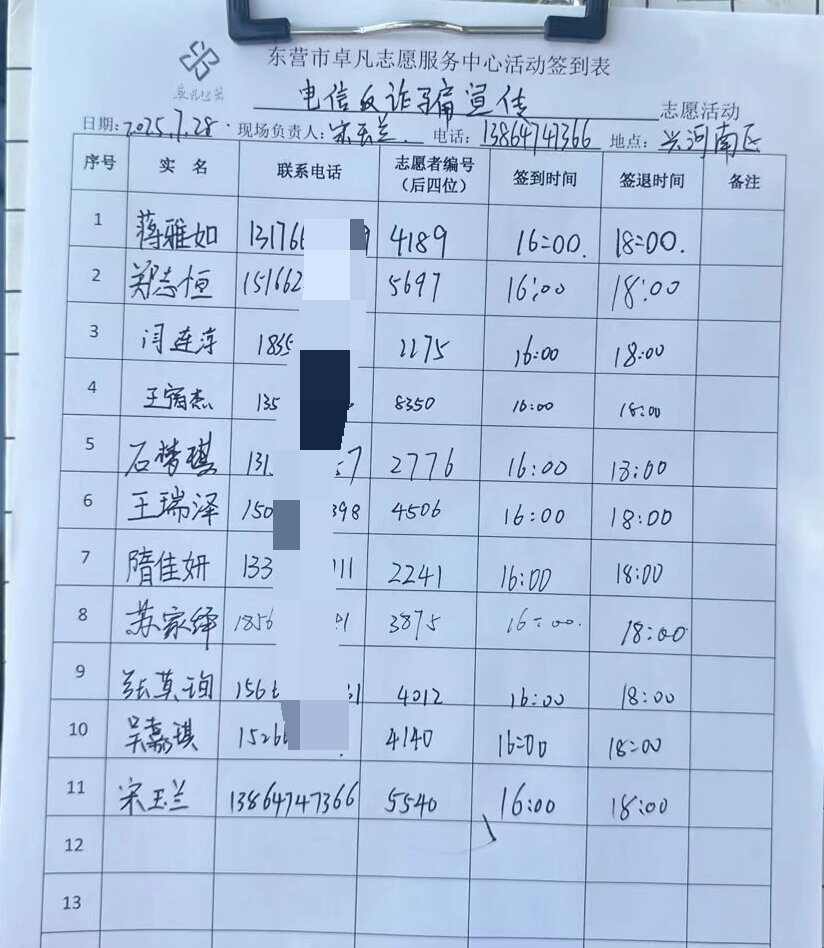 东营市卓凡志愿服务中心活动签到表
电信反诈骗宣传 志愿活动
日期:2025.7.28. 现场负责人:宋玉兰. 电话:13864747366 地点:兴河南区
序号 实 名 联系电话 志愿者编号(后四位) 签到时间 签退时间 备注
1 蒋雅如 13176 9 4189 16=00. 18=00.
2 郑志恒 151662 5697 16:00 18:00
3 闫连萍 1835 2275 16:00 18:00
4 王宿杰 135 8350 16:00 18:00
5 石梦琪 131 7 2776 16:00 18:00
6 王瑞泽 150 398 4506 16:00 18:00
7 隋佳妍 133 111 2241 16:00 18:00
8 苏家绎 1856 41 3875 16=00. 18:00
9 张莫珣 156 31 4012 16:00 18:00
10 吴嘉琪 1526 4140 16=00 18=00
11 宋玉兰 13864747366 5540 16:00 18:00
12
13